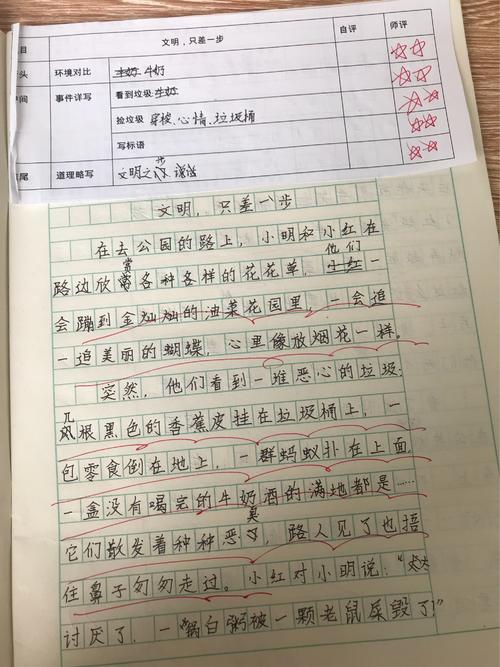 目 文明，只差一步 自评 师评
头 环境对比 牛奶
间 事件详写 看到垃圾：牛奶
捡垃圾 穿梭、心情、垃圾桶
写标语
尾 道理略写 文明之步 谈话
文明，只差一步
在去公园的路上，小明和小红在
路边欣赏各种各样的花花草，他们一
会蹦到金灿灿的油菜花园里，一会追
一追美丽的蝴蝶，心里像放烟花一样。
突然，他们看到一堆恶心的垃圾：
几根黑色的香蕉皮挂在垃圾桶上，一
包零食倒在地上，一群蚂蚁扑在上面，
一盒没有喝完的牛奶洒的满地都是……
它们散发着种种恶臭，路人见了也捂
住鼻子匆匆走过。小红对小明说：“太
讨厌了，一“锅白粥被一颗老鼠屎毁了”